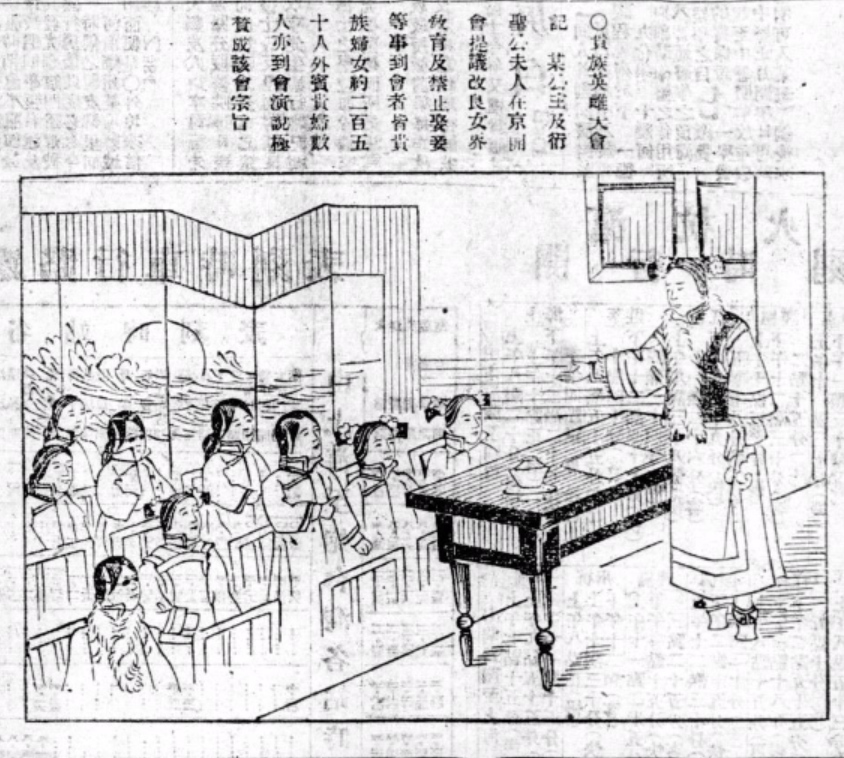 ○貴族英雌大會
記　某公主及衍
聖公夫人在京開
會提議改良女界
教育及禁止娶妾
等事到會者皆貴
族婦女約二百五
十人外賓貴婦數
人亦到會演說極
贊成該會宗旨